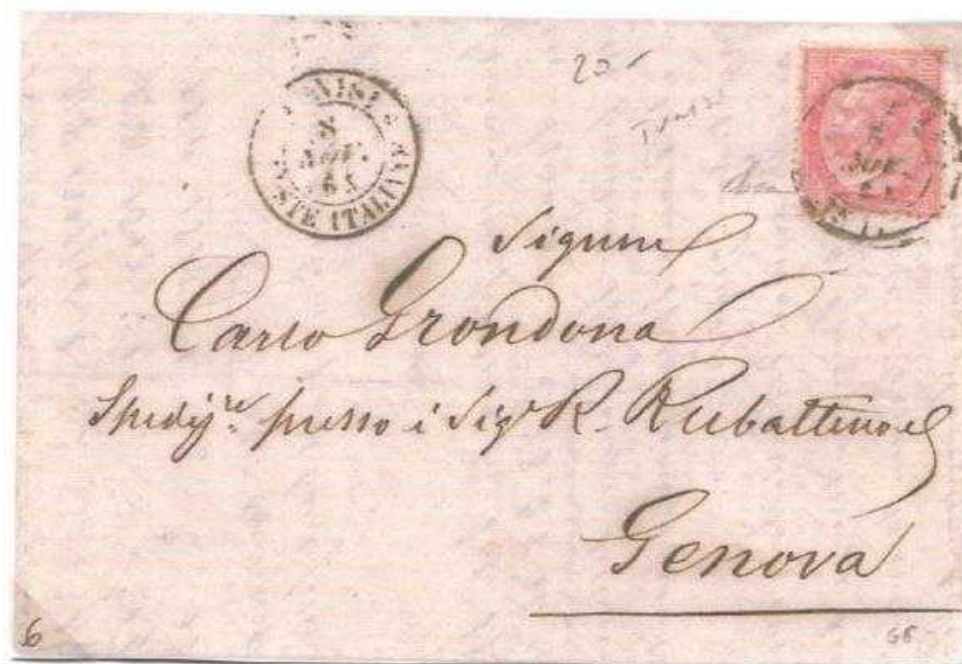 20
TUNISI
8
NOV.
65
POSTE ITALIANE
NOV.
Signore
Carlo Grondona
Spedizre. presso i Sigri R. Rubattino e C
Genova
6
GB